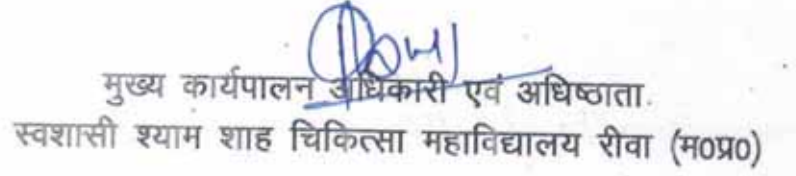 मुख्य कार्यपालन अधिकारी एवं अधिष्ठाता.
स्वशासी श्याम शाह चिकित्सा महाविद्यालय रीवा (म०प्र०)